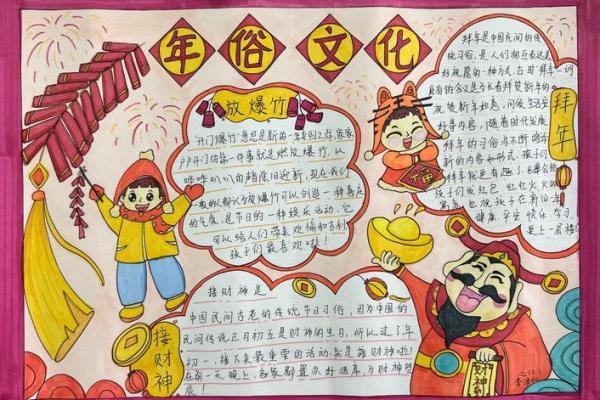 年俗文化
放爆竹
开门爆竹意思是新的一年到之际,家家
户户开门的第一件事就是燃放爆竹.以
哔哔叭叭的爆除旧迎新.现在我们
一般的都认为放爆竹可以创造一种喜庆
的气氛,是节日的一种娱乐活动.它
可以给人们带来欢愉和吉利,
孩子们最喜欢啦!
拜年
拜年是中国民间的传
统习俗,是人们相互表达美
好祝愿的一种方式.古时"拜年"一词
原有的含义是为长者拜贺新年的
祝贺新年如意,问候生活安
好等内容,随着时代发展
拜年的习俗亦不断增
新的内容和形式.孩子们
拜年就更有趣了,长辈会给
孩子们发红包,红红火火的
寓意也祝孩子在新旧年
健康、平安、快乐、学习
更上一层楼
福
接财神
接财神是
中国民间古老的传统节日习俗,因为中国的
民间传说正月初五是财神的生日,所以过了年
初一,接下来最重要的活动就是接财神啦!
在前一天晚上,各家都置办好酒席,为财神贺
辰!
财神
二(2)